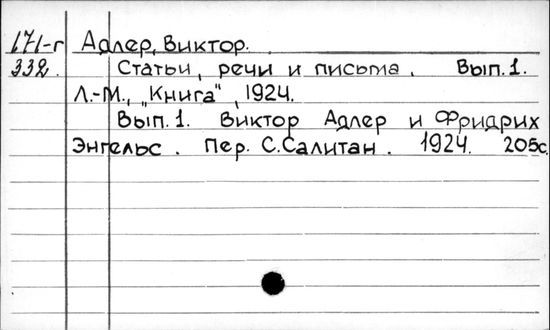 171-г Адлер, Виктор.
332. Статьи, речи и письма. Вып. 1.
Л.-М., „Книга", 1924.
Вып. 1. Виктор Адлер и Фридрих
Энгельс. Пер. С. Салитан. 1924. 205с.